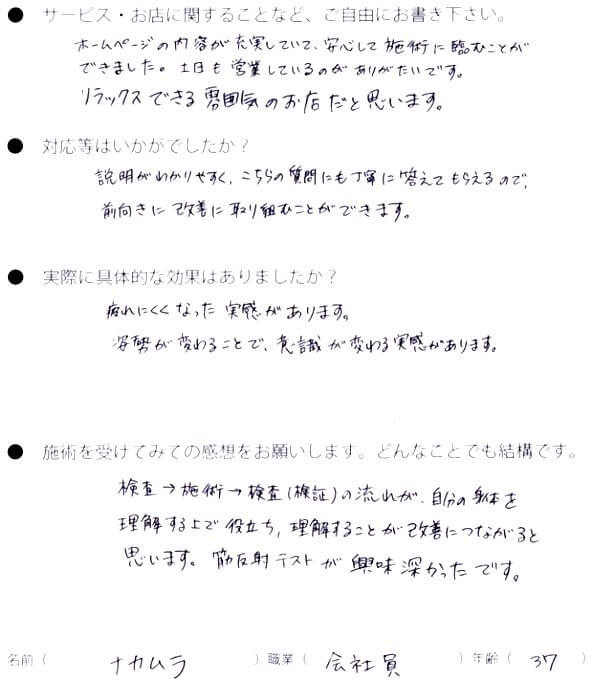 ● サービス・お店に関することなど、ご自由にお書き下さい。
ホームページの内容が充実していて、安心して施術に臨むことが
できました。土日も営業しているのがありがたいです。
リラックスできる雰囲気のお店だと思います。
● 対応等はいかがでしたか？
説明がわかりやすく、こちらの質問にも丁寧に答えてもらえるので、
前向きに改善に取り組むことができます。
● 実際に具体的な効果はありましたか？
疲れにくくなった実感があります。
姿勢が変わることで、意識が変わる実感があります。
● 施術を受けてみての感想をお願いします。どんなことでも結構です。
検査→施術→検査(検証)の流れが、自分の身体を
理解する上で役立ち、理解することが改善につながると
思います。筋反射テストが興味深かったです。
名前（ナカムラ）職業（会社員）年齢（37）